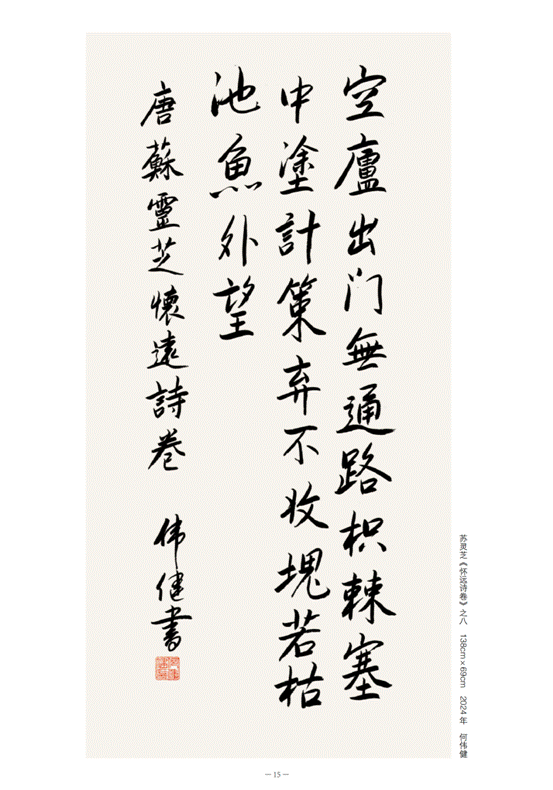 空廬出门無通路枳棘塞
中塗計策弃不收塊若枯
池魚外望
唐蘇靈芝懷遠詩卷 伟健書
苏灵芝《怀远诗卷》之八 138cm×69cm 2024年 何伟健
— 15 —